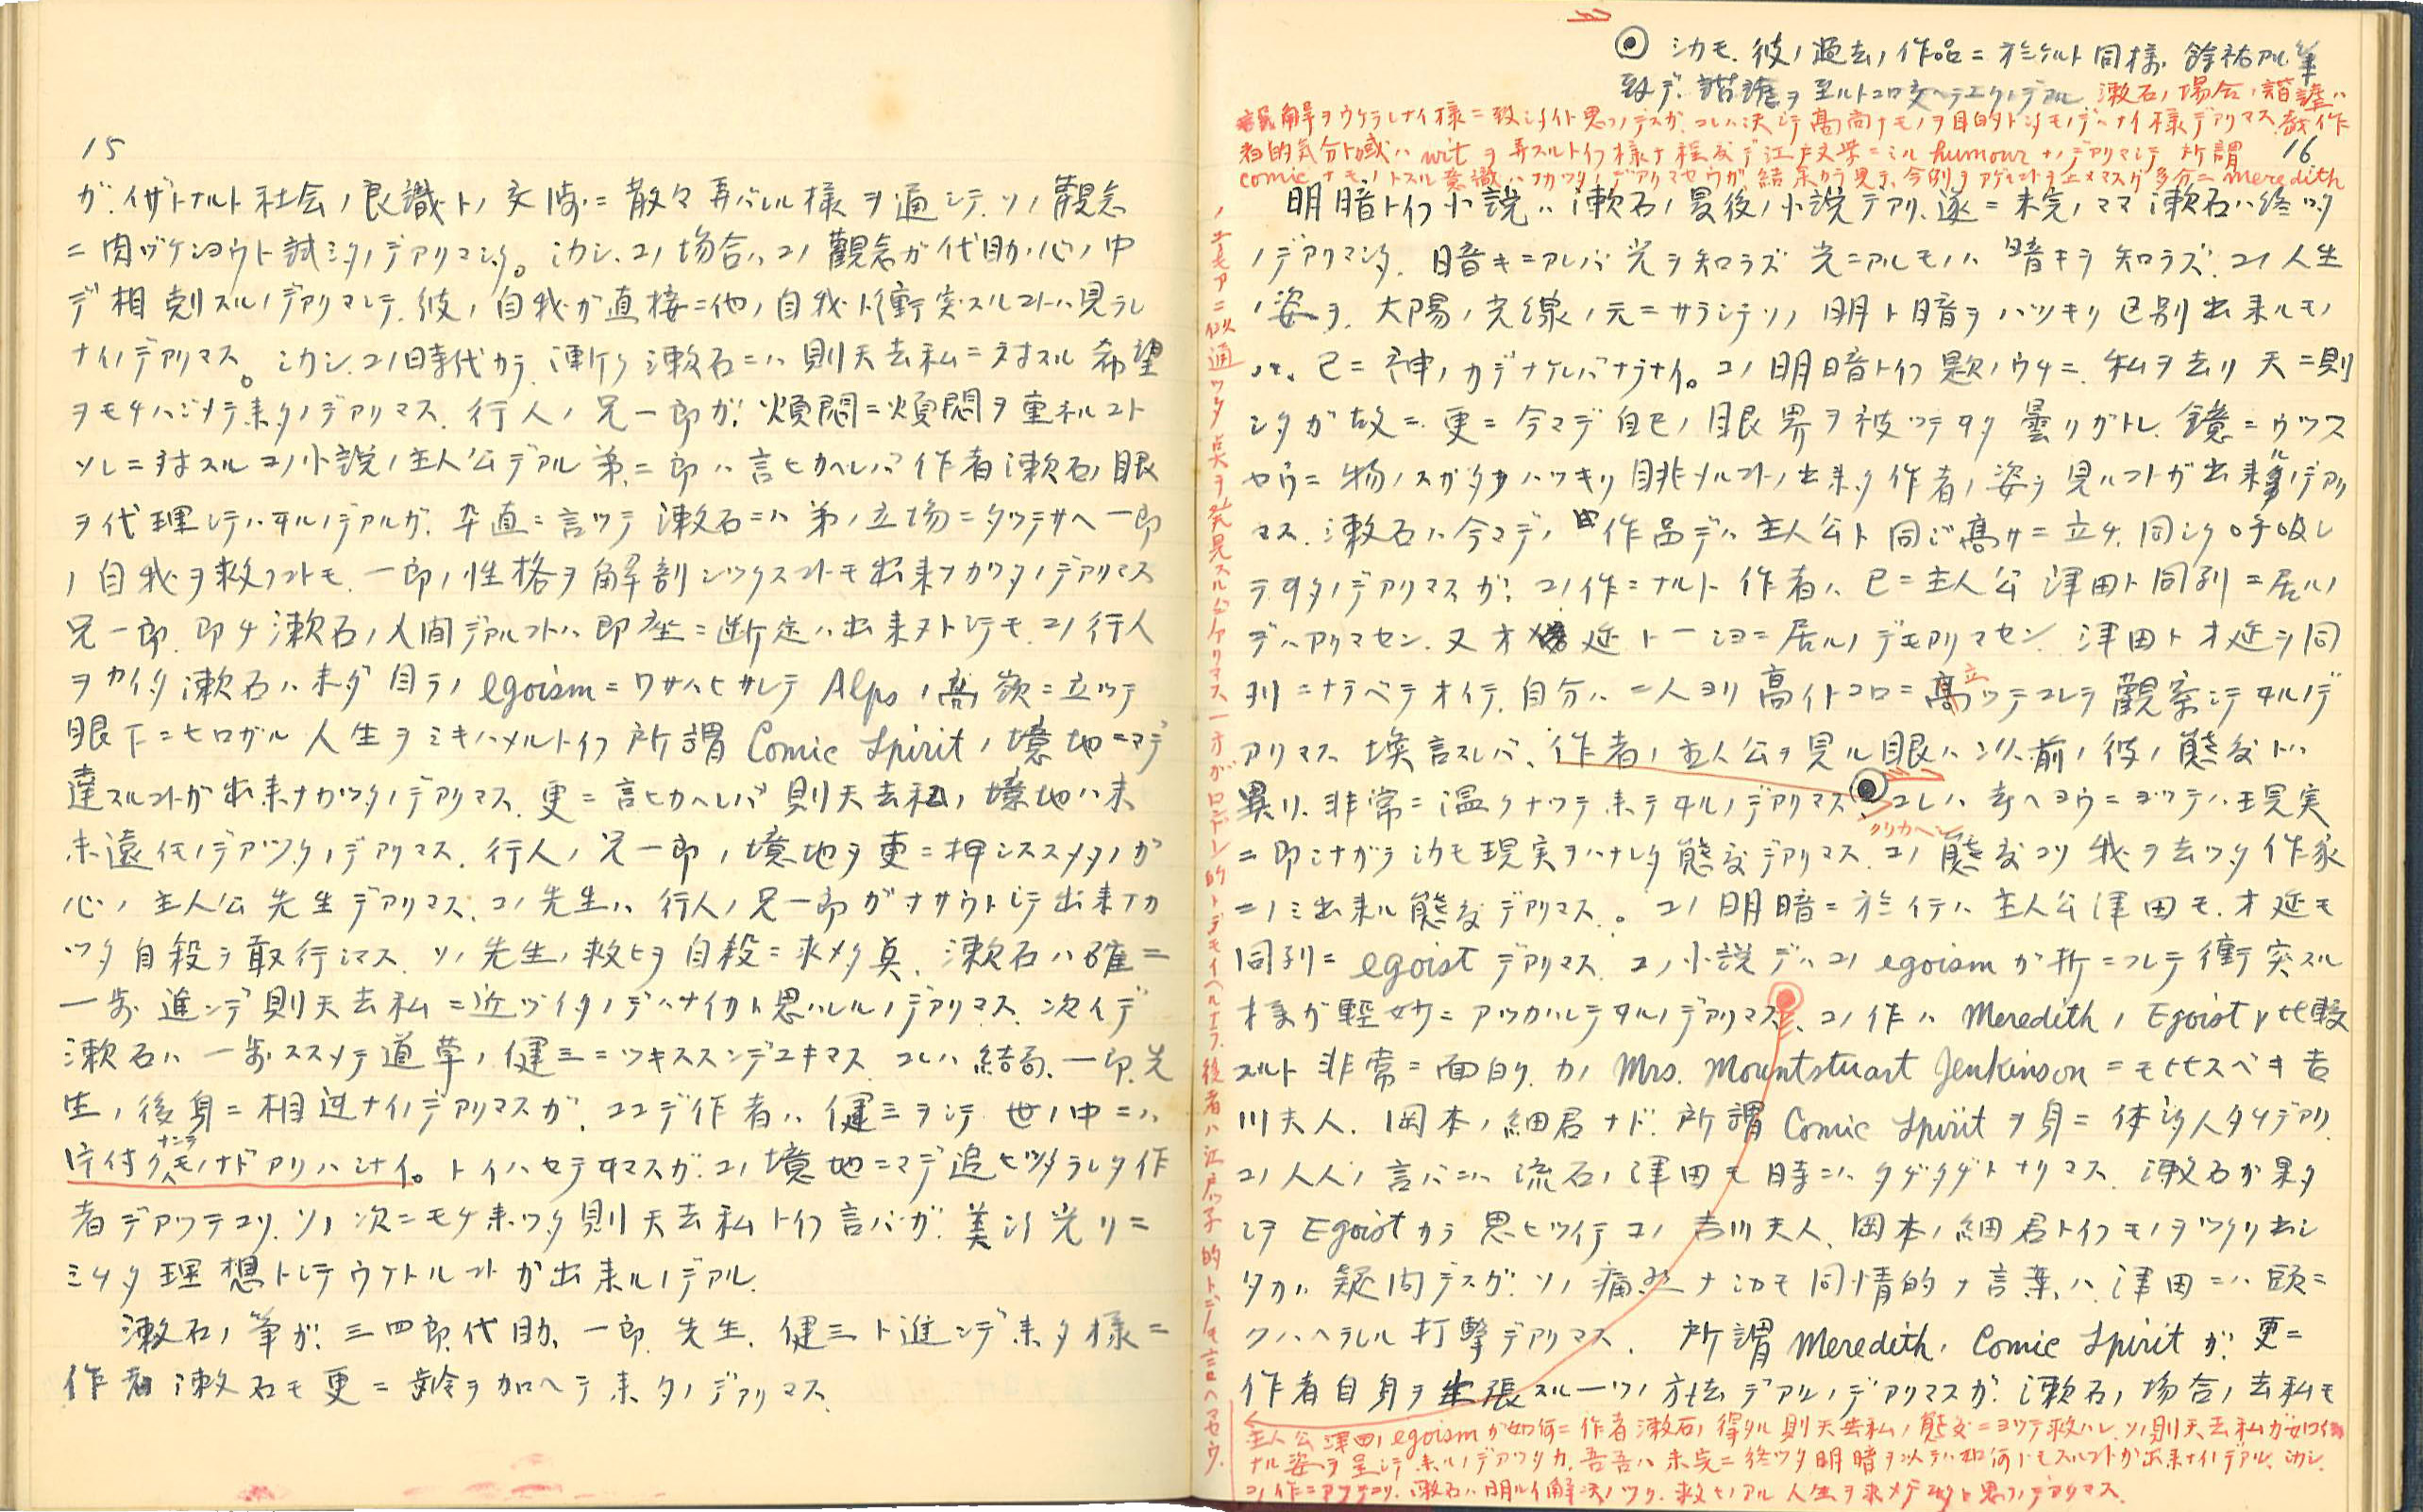 15
ガ、イザトナルト社会ノ良識トノ交渉ニ散々再バレル様ヲ通シテ、ソノ観念
ニ肉ヅケシヨウト試ミタノデアリマシタ。シカシ、コノ場合ハコノ觀念ガ代助ノ心ノ中
デ相剋スルノデアリマシテ、彼ノ自我ガ直接ニ他ノ自我ト衝突スルコトハ見ラレ
ナイノデアリマス。シカシ、コノ時代カラ、漸ク漱石ニハ則天去私ニ対スル希望
ヲモチハジメテ来タノデアリマス。行人ノ兄一郎ガ、煩悶ニ煩悶ヲ重ネルコト
ソレニ対スルコノ小説ノ主人公デアル弟、二郎ハ言ヒカヘレバ作者漱石ノ眼
ヲ代理シテハヰルノデアルガ、卒直ニ言ツテ漱石ニハ弟ノ立場ニタツテサヘ一郎
ノ自我ヲ救フコトモ、一郎ノ性格ヲ解剖シツクスコトモ出来ナカツタノデアリマス
兄一郎、即チ漱石ノ人間デアルコトハ即座ニ断定ハ出来ヌトシテモ、コノ行人
ヲカイタ漱石ハ未ダ自ラノegoismニワザハヒサレテAlpsノ高嶺ニ立ツテ
眼下ニヒロガル人生ヲミキハメルトイフ所謂Comic Spiritノ境地ニマデ
達スルコトガ出来ナカツタノデアリマス、更ニ言ヒカヘレバ則天去私ノ境地ハ未
ダ遠イモノデアツタノデアリマス。行人ノ兄一郎ノ境地ヲ更ニ押シススメタノガ
心ノ主人公先生デアリマス、コノ先生ハ行人ノ兄一郎ガナサウトシテ出来ナカ
ツタ自殺ヲ敢行シマス、ソノ先生ノ救ヒヲ自殺ニ求メタ点、漱石ハ確ニ
一歩進ンデ則天去私ニ近ヅイタノデハナイカト思ハレルノデアリマス、次イデ
漱石ハ一歩ススメテ道草ノ健三ニツキススンデユキマス、コレハ結局、一郎、先
生ノ後身ニ相違ナイノデアリマスガ、ココデ作者ハ健三ヲシテ世ノ中ニハ
片付クモノナドアリハシナイ。トイハセテヰマスガ、コノ境地ニマデ追ヒツメラレタ作
者デアツテコソ、ソノ次ニモチ来ツタ則天去私トイフ言バガ、美シイ光リニ
ミチタ理想トシテウケトルコトガ出来ルノデアル。
漱石ノ筆ガ、三四郎、代助、一郎、先生、健三ト進ンデ来タ様ニ
作者漱石モ更ニ齢ヲ加ヘテ来タノデアリマス。
シカモ、彼ノ過去ノ作品ニオケルト同様、餘裕アル筆
致デ、諧謔ヲ至ルトコロ交ヘテユクノデアル 漱石ノ場合ノ諧謔ハ
誤解ヲウケラレナイ様ニ致シタイト思フノデスガ、コレハ決シテ高尚ナモノヲ目的トシタモノデハナイ様デアリマス、戯作
者的気分ト或ハwitヲ弄スルトイフ様ナ程度デ江戸文学ニミルhumourナノデアリマシテ所謂
16
comicナモノトスル意識ハナカツタノデアリマセウガ結果カラ見テ、今例ヲアゲルコトヲ止メマスガ多分ニMeredith
ノユーモアニ似通ツタ点ヲ発見スルノデアリマス一方ガロンドン的トデモイヘルナラ、後者ハ江戸ッ子的トデモ言ヘマセウ。
明暗トイフ小説ハ漱石ノ最後ノ小説デアリ、遂ニ未完ノママ漱石ハ終ツタ
ノデアリマシタ、暗キニアレバ光ヲ知ラズ光ニアルモノハ暗キヲ知ラズ、コノ人生
ノ姿ヲ、太陽ノ光線ノ元ニサラシテソノ明ト暗ヲハツキリ区別出来ルモノ
ハ、已ニ神ノ力デナケレバナラナイ。コノ明暗トイフ題ノウチニ、私ヲ去リ天ニ則
シタガ故ニ、更ニ今マデ自己ノ眼界ヲ被ツテヰタ曇リガトレ、鏡ニウツス
ヤウニ物ノスガタヲハツキリ眺メルコトノ出来タ作者ノ姿ヲ見ルコトガ出来ルノデアリ
マス、漱石ハ今マデノ作品デハ主人公ト同ジ高サニ立チ、同ジク呼吸シ
テヰタノデアリマスガ、コノ作ニナルト作者ハ已ニ主人公津田ト同列ニ居ルノ
デハアリマセン、又オ延ト一シヨニ居ルノデモアリマセン、津田トオ延ヲ同
列ニナラベテオイテ、自分ハ二人ヨリ高イトコロニ立ツテコレヲ觀察シテヰルノデ
アリマス、換言スレバ、作者ノ主人公ヲ見ル眼ハ以前ノ彼ノ態度トハ
異リ、非常ニ温クナツテ来テヰルノデアリマス、コレハ考ヘヨウニヨツテハ現実
クリカヘシ
ニ即シナガラシカモ現実ヲハナレタ態度デアリマス、コノ態度コソ我ヲ去ツタ作家
ニノミ出来ル態度デアリマス。コノ明暗ニ於イテハ主人公津田モ、オ延モ
同列ニegoistデアリマス、コノ小説デハコノegoismガ折ニフレテ衝突スル
様ガ軽妙ニアツカハレテヰルノデアリマス、コノ作ハMeredithノEgoistト比較
スルト非常ニ面白ク、カノMrs. Mountstuart Jenkinsonニモ比スベキ吉
川夫人、岡本ノ細君ナド、所謂Comic Spiritヲ身ニ体シタ人タチデアリ、
コノ人人ノ言バニハ流石ノ津田モ時ニハタヂタヂトナリマス、漱石ガ果タ
シテEgoistカラ思ヒツイテコノ吉川夫人、岡本ノ細君トイフモノヲツクリ出シ
タカハ疑問デスガ、ソノ痛烈ナシカモ同情的ナ言葉ハ、津田ニハ頭ニ
クハヘラレル打撃デアリマス、所謂MeredithノComic Spiritガ、更ニ
作者自身ヲ主張スル一ツノ方法デアルノデアリマスガ、漱石ノ場合ノ去私モ
主人公津田ノegoismガ如何ニ作者漱石ノ得タル則天去私ノ態度ニヨツテ救ハレ、ソノ則天去私ガ如何
ナル姿ヲ呈シテ来ルノデアツタカ、吾吾ハ未完ニ終ツタ明暗ヲ以テハ如何トモスルコトガ出来ナイノデアル、シカシ、
コノ作ニアツテコソ、漱石ハ明ルイ解決ノツク、救ヒノアル人生ヲ求メテヰタト思フノデアリマス、